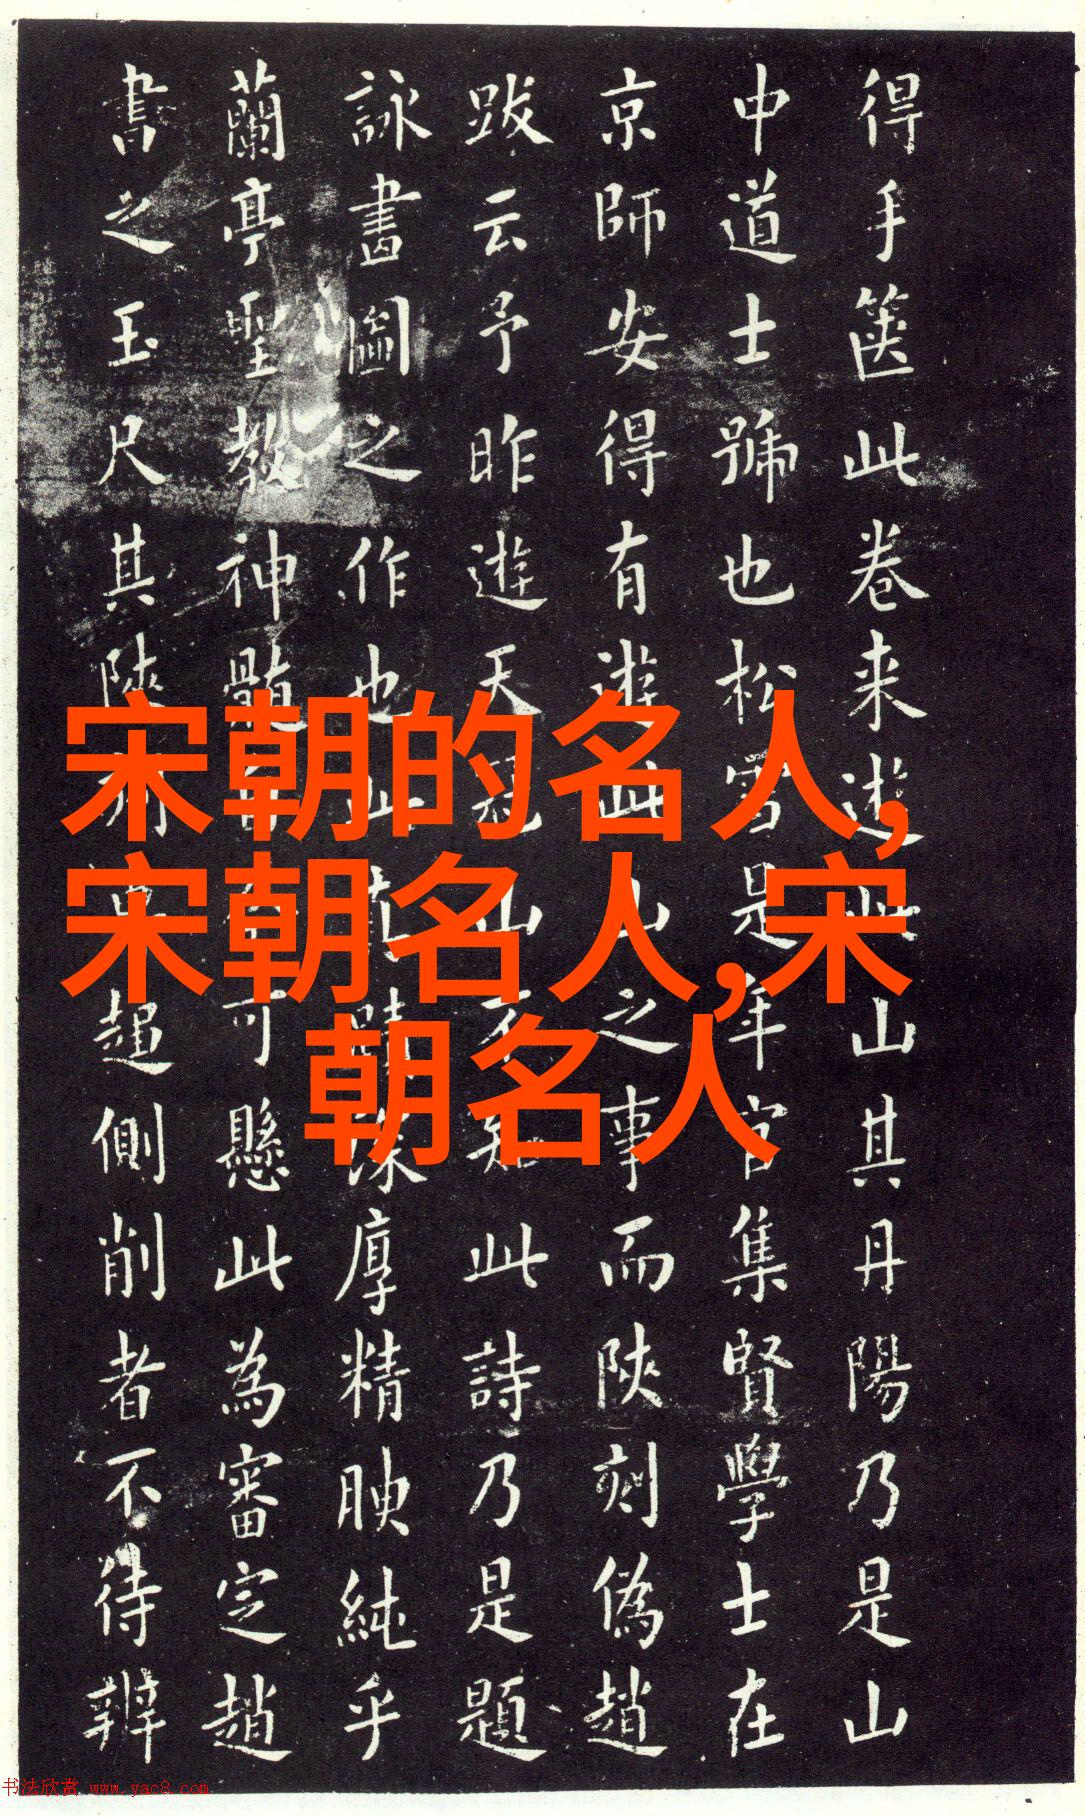 宋朝的名人,
宋朝名人,宋
朝名人
得手篋此卷来遊此山其丹陽乃是山
中道士號也松雪是年官集賢學士在
京師安得有遊此山之事而陝刻偽趙
跋云予昨遊天冠山不知此詩乃是題
詠畫圖之作也此蹟深厚精腴純乎
蘭亭聖教神髓皆可懸此為審定趙
書之玉尺其陝刻側削者不待辨
书法欣赏 www.yac8.com